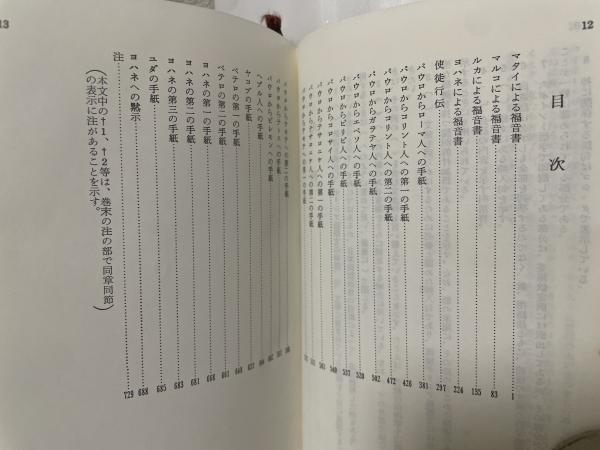 12
目次
マタイによる福音書 1
マルコによる福音書 83
ルカによる福音書 135
ヨハネによる福音書 224
使徒行伝 297
パウロからローマ人への手紙 381
パウロからコリント人への第一の手紙 426
パウロからコリント人への第二の手紙 472
パウロからガラテヤ人への手紙 502
パウロからエペソ人への手紙 520
パウロからピリピ人への手紙 537
パウロからコロサイ人への手紙 549
パウロからテサロニケ人への第一の手紙
パウロからテサロニケ人への第二の手紙
13
パウロからピレモンへの手紙
ヘブル人への手紙
ヤコブの手紙
ペテロの第一の手紙
ペテロの第二の手紙
ヨハネの第一の手紙 668
ヨハネの第二の手紙 681
ヨハネの第三の手紙 683
ユダの手紙 685
ヨハネへの黙示 688
注 729
(本文中の†1、†2等は、巻末の注の部で同章同節
の表示に注があることを示す。)